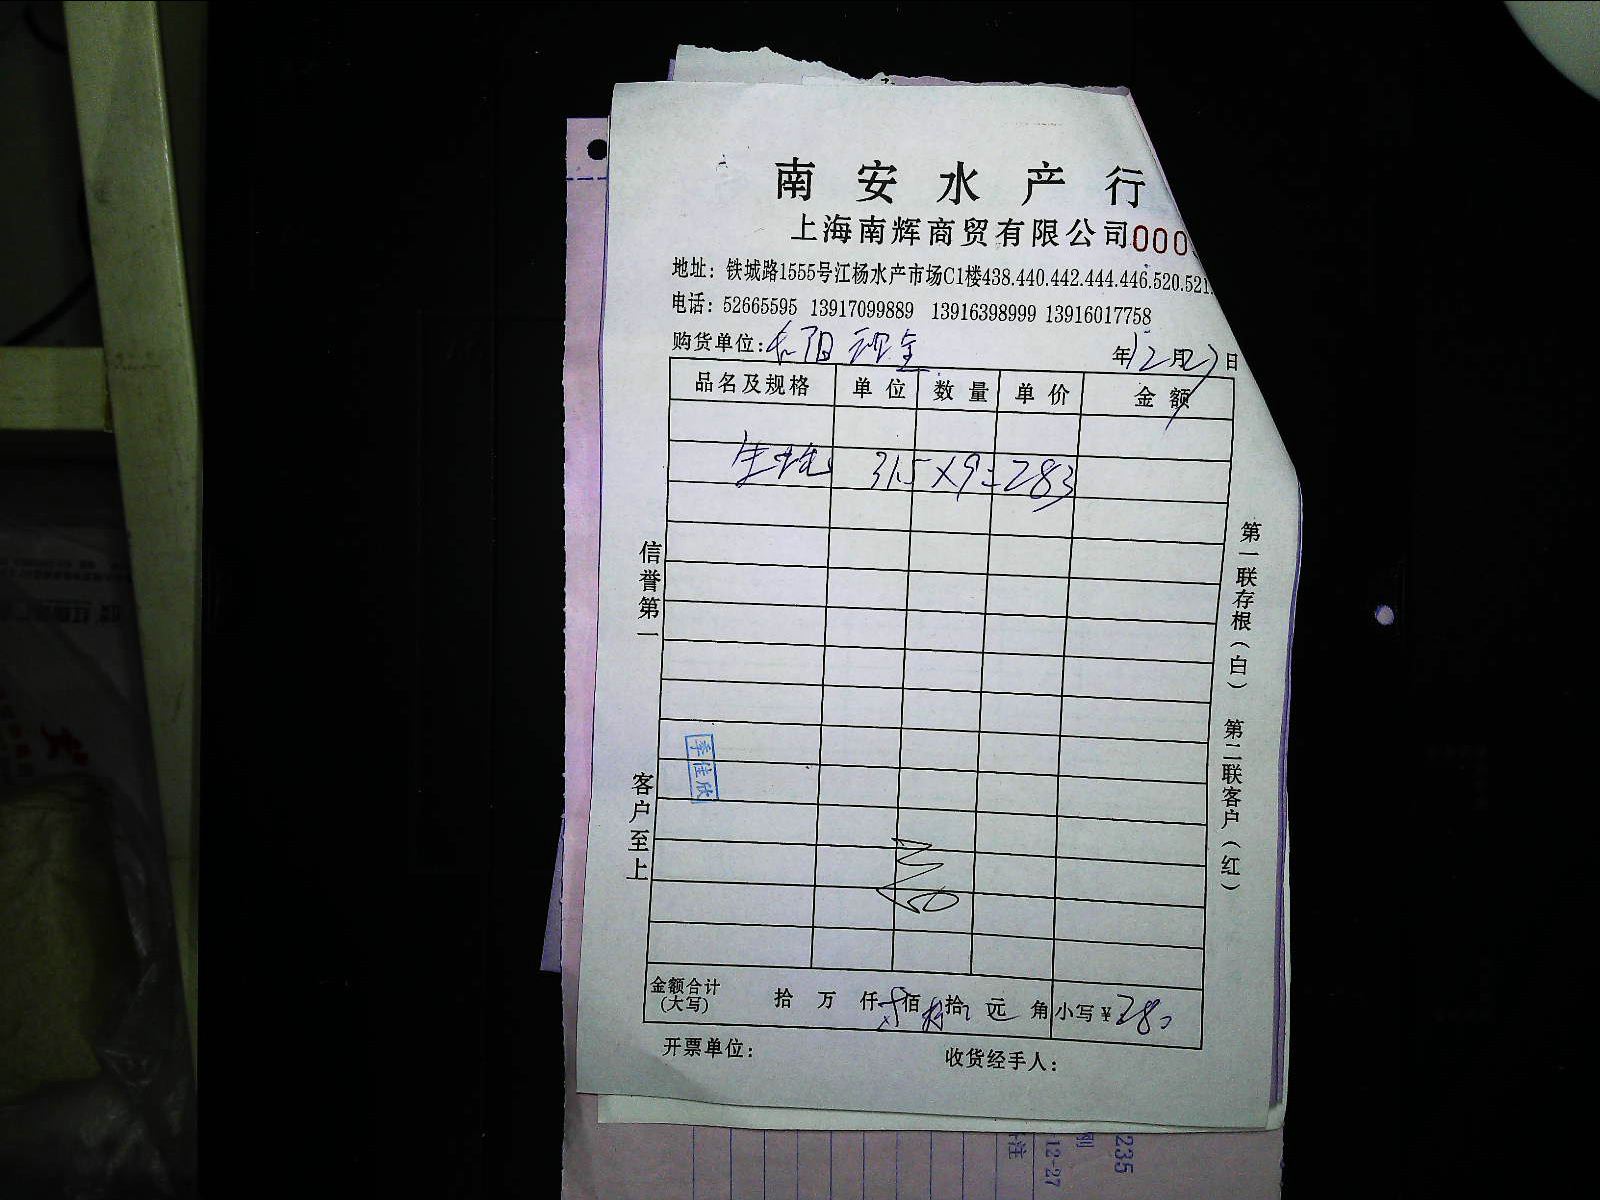 南安水产行
上海南辉商贸有限公司000
地址：铁城路1555号江杨水产市场C1楼438.440.442.444.446.520.521.
电话：52665595 13917099889 13916398999 13916017758
购货单位：长阳 现金 年12月27日
品名及规格 单位 数量 单价 金额
31.5×9=283
信誉第一
客户至上
第一联存根（白） 第二联客户（红）
季佳欣
金额合计(大写) 拾 万 仟 贰佰 捌拾 元 角 小写¥280
开票单位： 收货经手人：
235
12-27
注